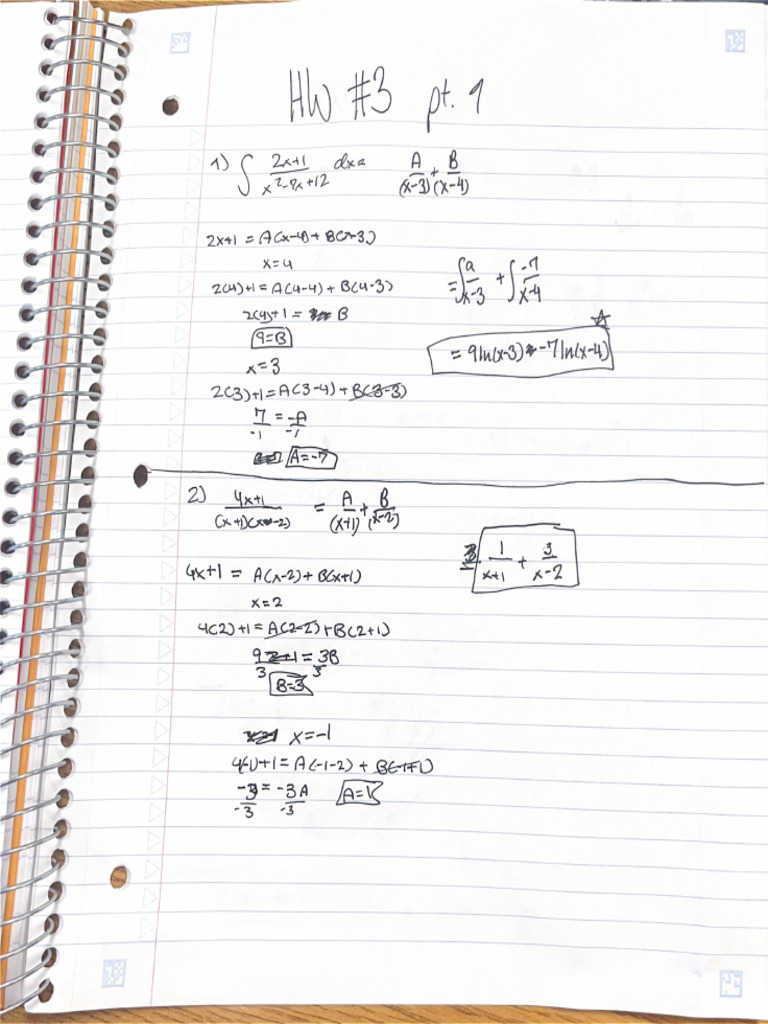 HW #3 pt. 1
1) ∫ 2x+1 / x²-7x+12 dx = A/(x-3) + B/(x-4)
2x+1 = A(x-4) + B(x-3)
x=4
2(4)+1 = A(4-4) + B(4-3)
2(4)+1 = B
9=B
x=3
2(3)+1 = A(3-4) + B(3-3)
7/-1 = -A/-1
A=-7
= ∫ 9/x-3 + ∫ -7/x-4
= 9ln(x-3) - 7ln(x-4)
2) 4x+1 / (x+1)(x-2) = A/(x+1) + B/(x-2)
4x+1 = A(x-2) + B(x+1)
x=2
4(2)+1 = A(2-2) + B(2+1)
9/3 = 3B/3
B=3
x=-1
4(-1)+1 = A(-1-2) + B(-1+1)
-3/-3 = -3A/-3 A=1
1/x+1 + 3/x-2